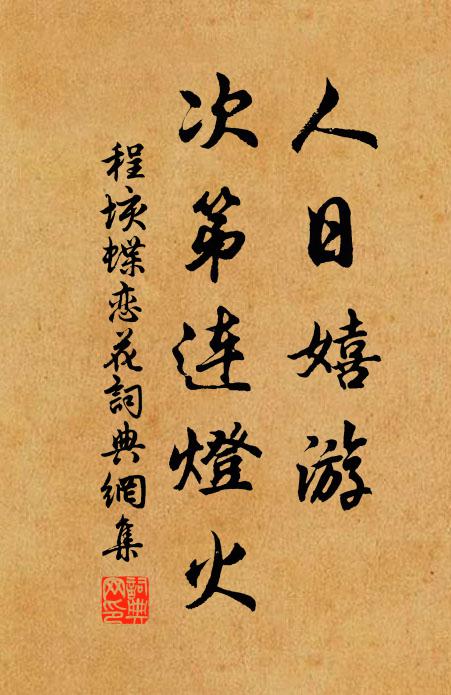 人日嬉游
次第连燈火
程垓蝶恋花詞典網集
詞典网印